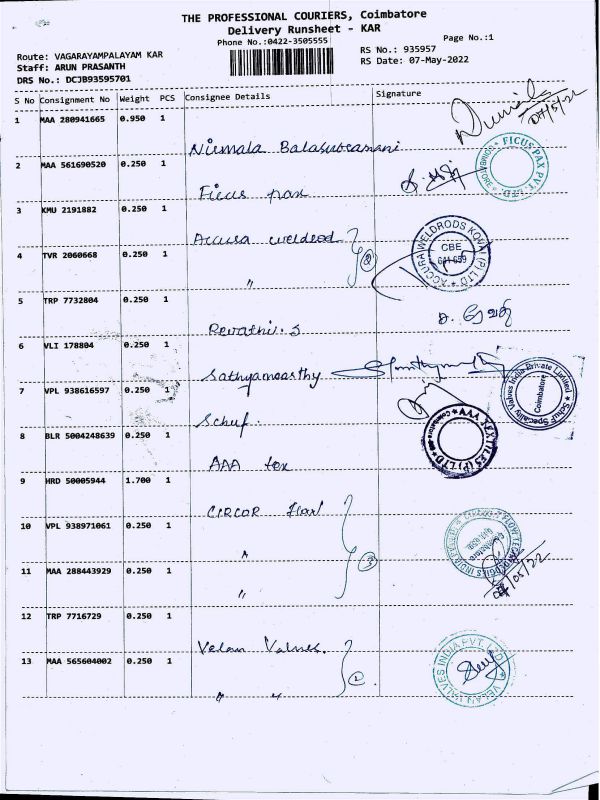 THE PROFESSIONAL COURIERS, Coimbatore
Delivery Runsheet - KAR
Phone No.:0422-3505555
Page No.:1
Route: VAGARAYAMPALAYAM KAR
RS No.: 935957
Staff: ARUN PRASANTH
RS Date: 07-May-2022
DRS No.: DCJB93595701
S No Consignment No Weight PCS Consignee Details Signature
1 MAA 280941665 0.950 1
Nirmala Balasubramani
07/5/22
2 MAA 561690520 0.250 1
Ficus pax
FICUS PAX PVT. LTD
3 KMU 2191882 0.250 1
Accusa weldrod
ACCURA WELDRODS KOVAI (P) LTD
CBE
641 659
4 TVR 2060668 0.250 1
" 2
5 TRP 7732804 0.250 1
Revathi. S
ச. ரேவதி
6 VLI 178804 0.250 1
Sathyamoorthy
7 VPL 938616597 0.250 1
Schuf.
SchuF Speciality Valves India Private Limited
Coimbatore
8 BLR 5004248639 0.250 1
AAA tex
AAA TEXTILES (P) LTD
Coimbatore
9 HRD 50005944 1.700 1
CIRCOR Flow
10 VPL 938971061 0.250 1
" 3
11 MAA 288443929 0.250 1
"
07/05/22
12 TRP 7716729 0.250 1
Velan Valves.
VELAN VALVES INDIA PVT. LTD
13 MAA 565604002 0.250 1
" " 2